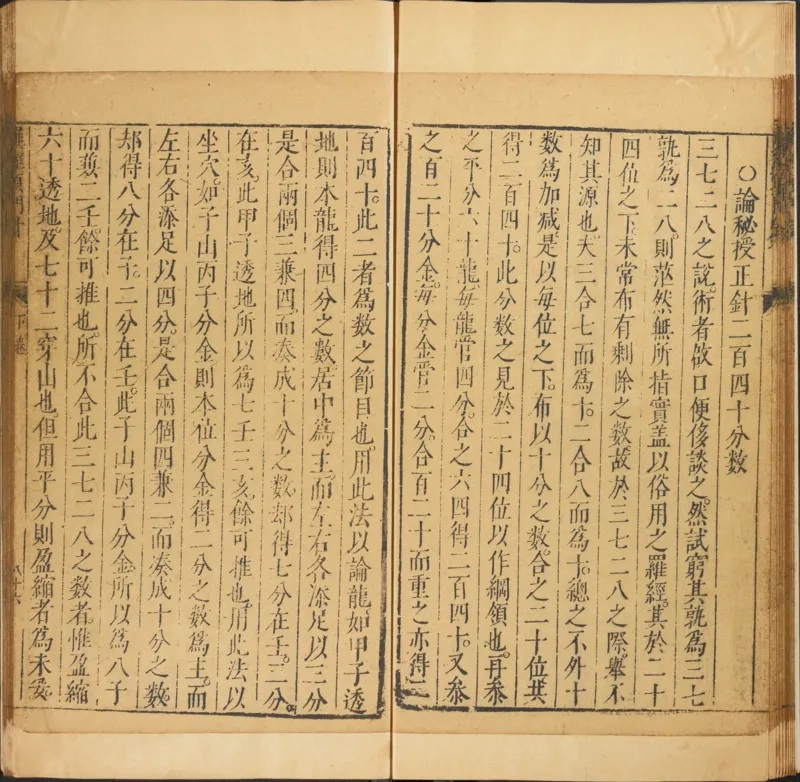 ○論秘授正針二百四十分數
三七二八之說術者啟口便侈談之然試窮其孰為三七
孰為二八則茫然無所指實蓋以俗用之羅經其於二十
四位之下未常布有剩除之數故於三七二八之際舉不
知其源也夫三合七而為十二合八而為十總之不外十
數為加減是以每位之下布以十分之數合之二十位共
得二百四十此分數之見於二十四位以作綱領也再叅
之平分六十龍每龍管四分合之六四得二百四十又叅
之百二十分金每分金管二分合百二十而重之亦得二
百四十此二者為數之節目也用此法以論龍如甲子透
地則本龍得四分之數居中為主而左右各添足以三分
是合兩個三兼四而湊成十分之數却得七分在壬三分
在亥此甲子透地所以為七壬三亥餘可推也用此法以
坐穴如子山丙子分金則本位分金得二分之數為主而
左右各添足以四分是合兩個四兼二而湊成十分之數
却得八分在子二分在壬此子山丙子分金所以為八子
而兼二壬餘可推也所不合此三七二八之數者惟盈縮
六十透地及七十二穿山也但用平分則盈縮者為未妥
下卷
八十六